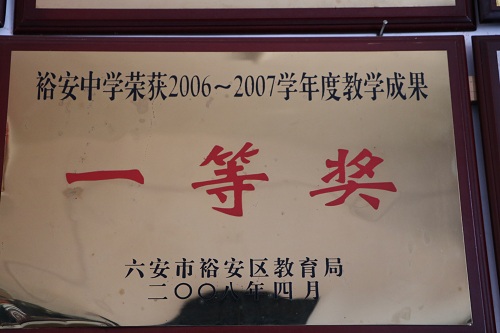 裕安中学荣获2006～2007学年度教学成果
一等奖
六安市裕安区教育局
二〇〇八年四月